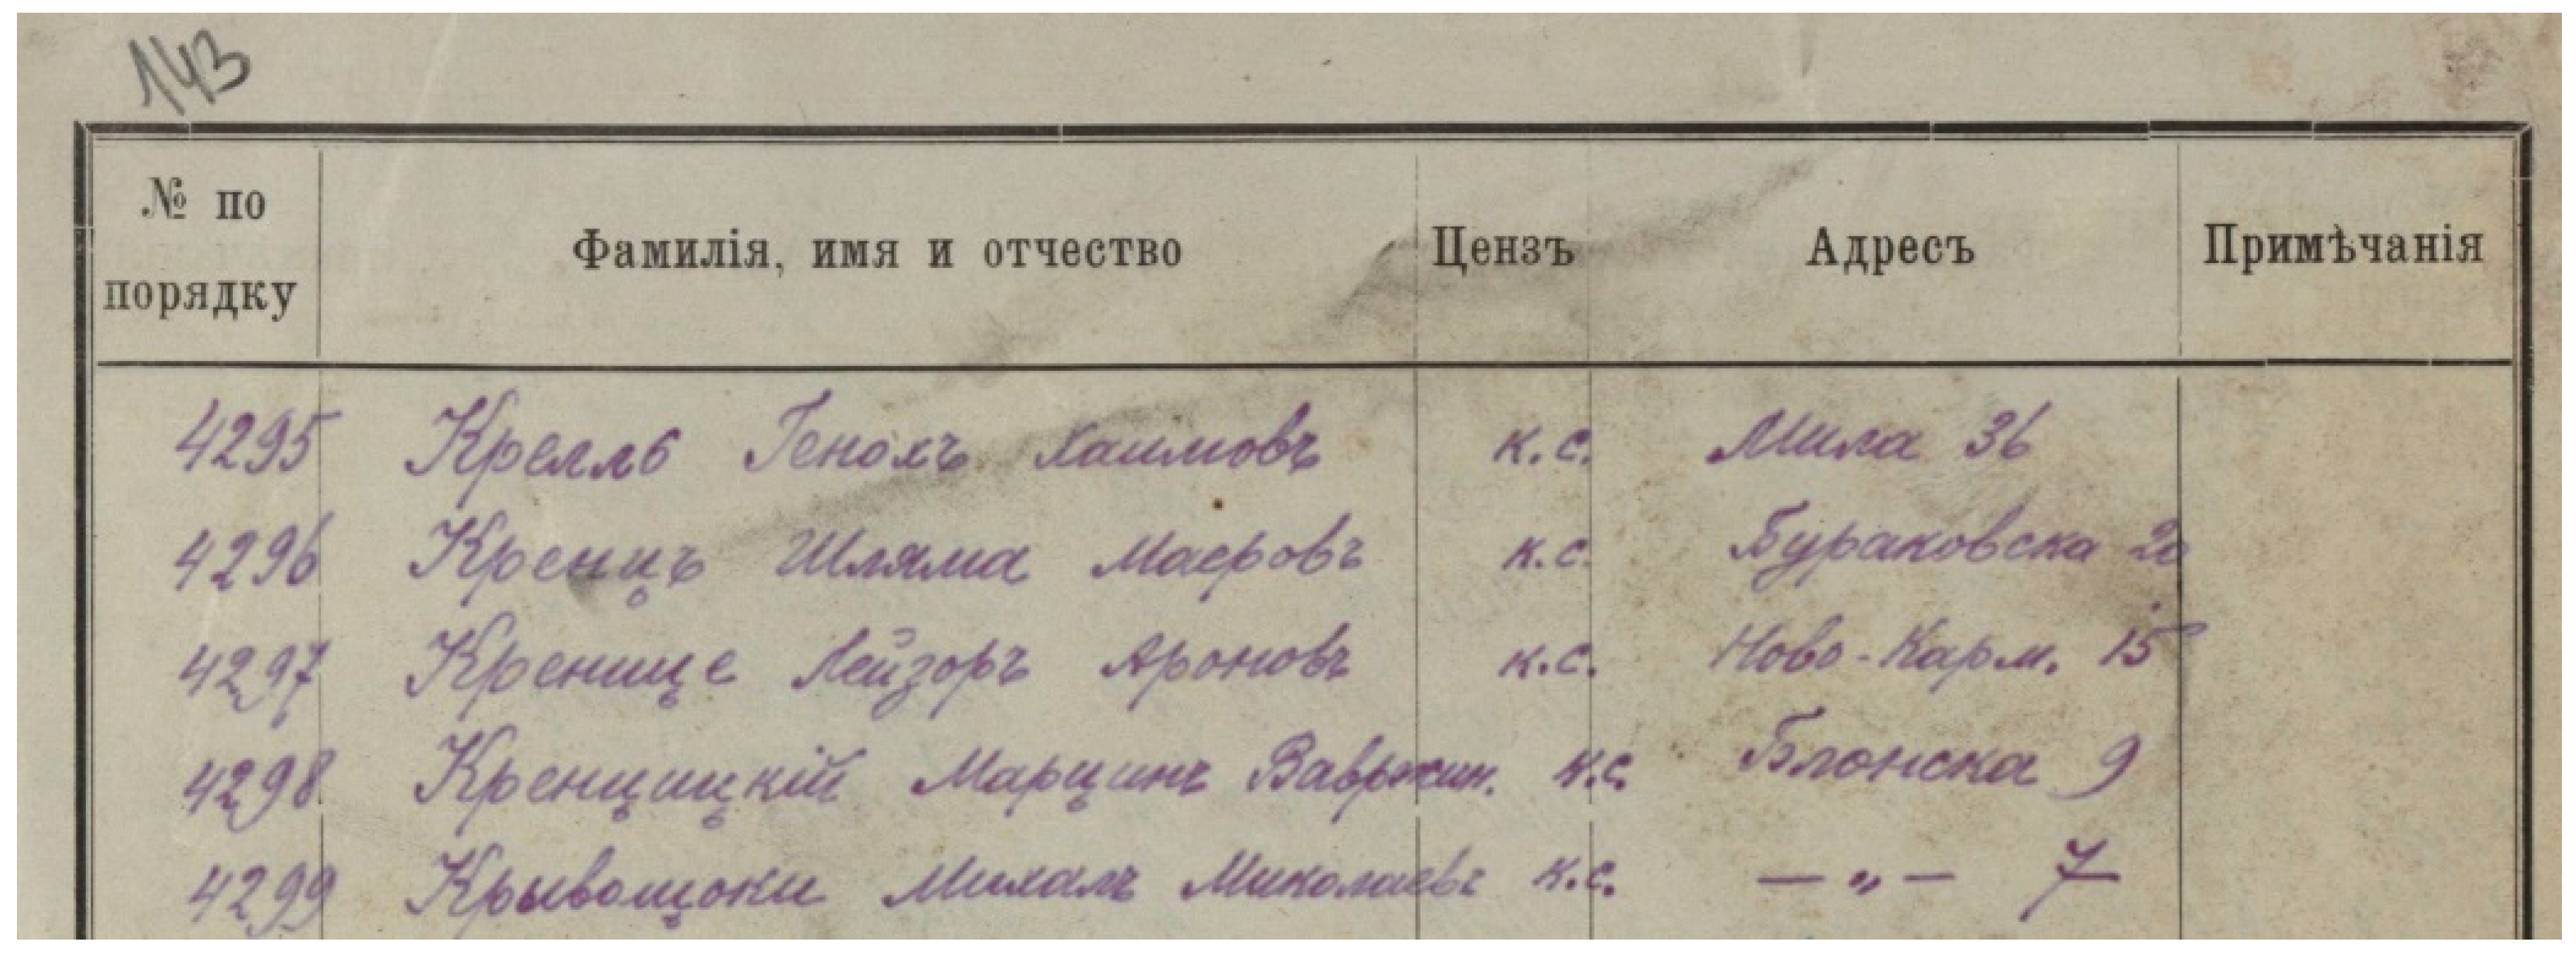 143
№ по порядку Фамилія, имя и отчество Цензъ Адресъ Примѣчанія
4295 Крелль Генохъ Хаимовъ к.с. Мила 36
4296 Кренцъ Шляма Маеровъ к.с. Бураковска 20
4297 Кренице Лейзоръ Ароновъ к.с. Ново-Карм. 15
4298 Кренцицкій Марцинъ Вавржин. к.с. Блонска 9
4299 Крывощоки Михалъ Миколаевъ к.с. — „ — 7